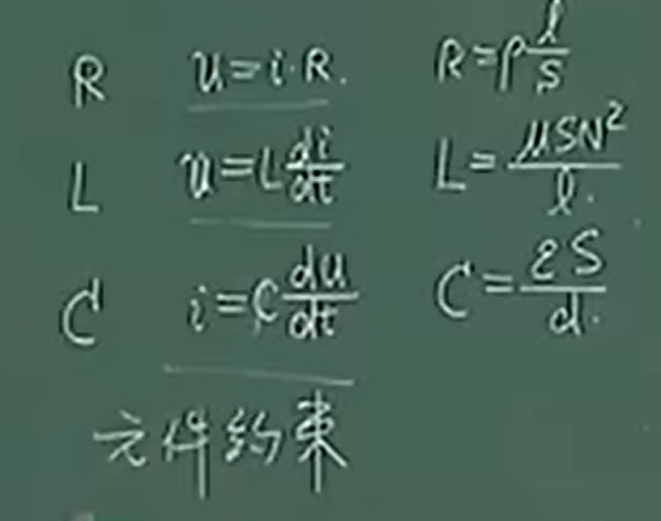 R u=i·R. R=ρl/S
L u=L di/dt L=μSN²/l.
C i=C du/dt C=εS/d.
元件约束